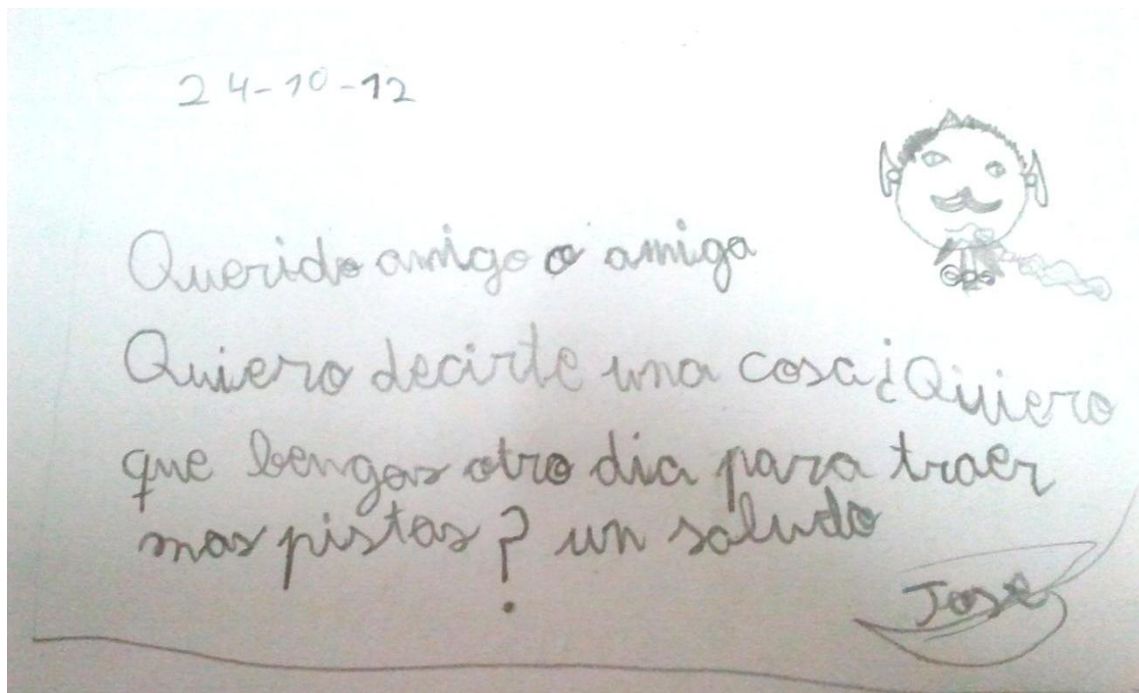 24-10-12
Querido amigo o amiga
Quiero decirte una cosa ¿Quiero
que bengas otro dia para traer
mas pistas? un saludo
Jose